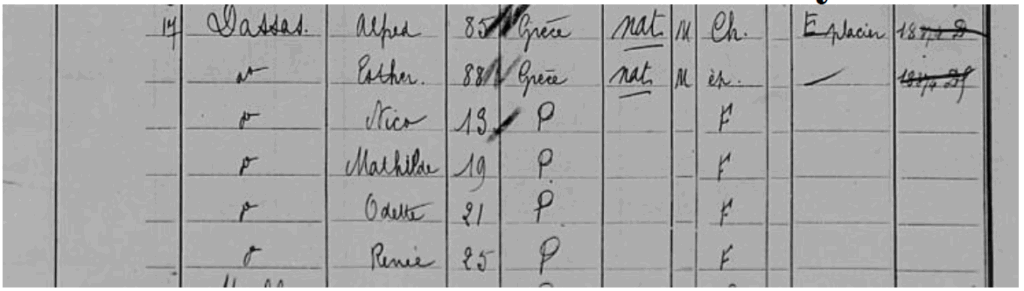 17 Dassas. Alfred 85 Grèce nat M Ch. E placier
d° Esther. 88 Grèce nat M ép. —
d° Nico 13 P F
d° Mathilde 19 P F
d° Odette 21 P F
d° Renée 25 P F